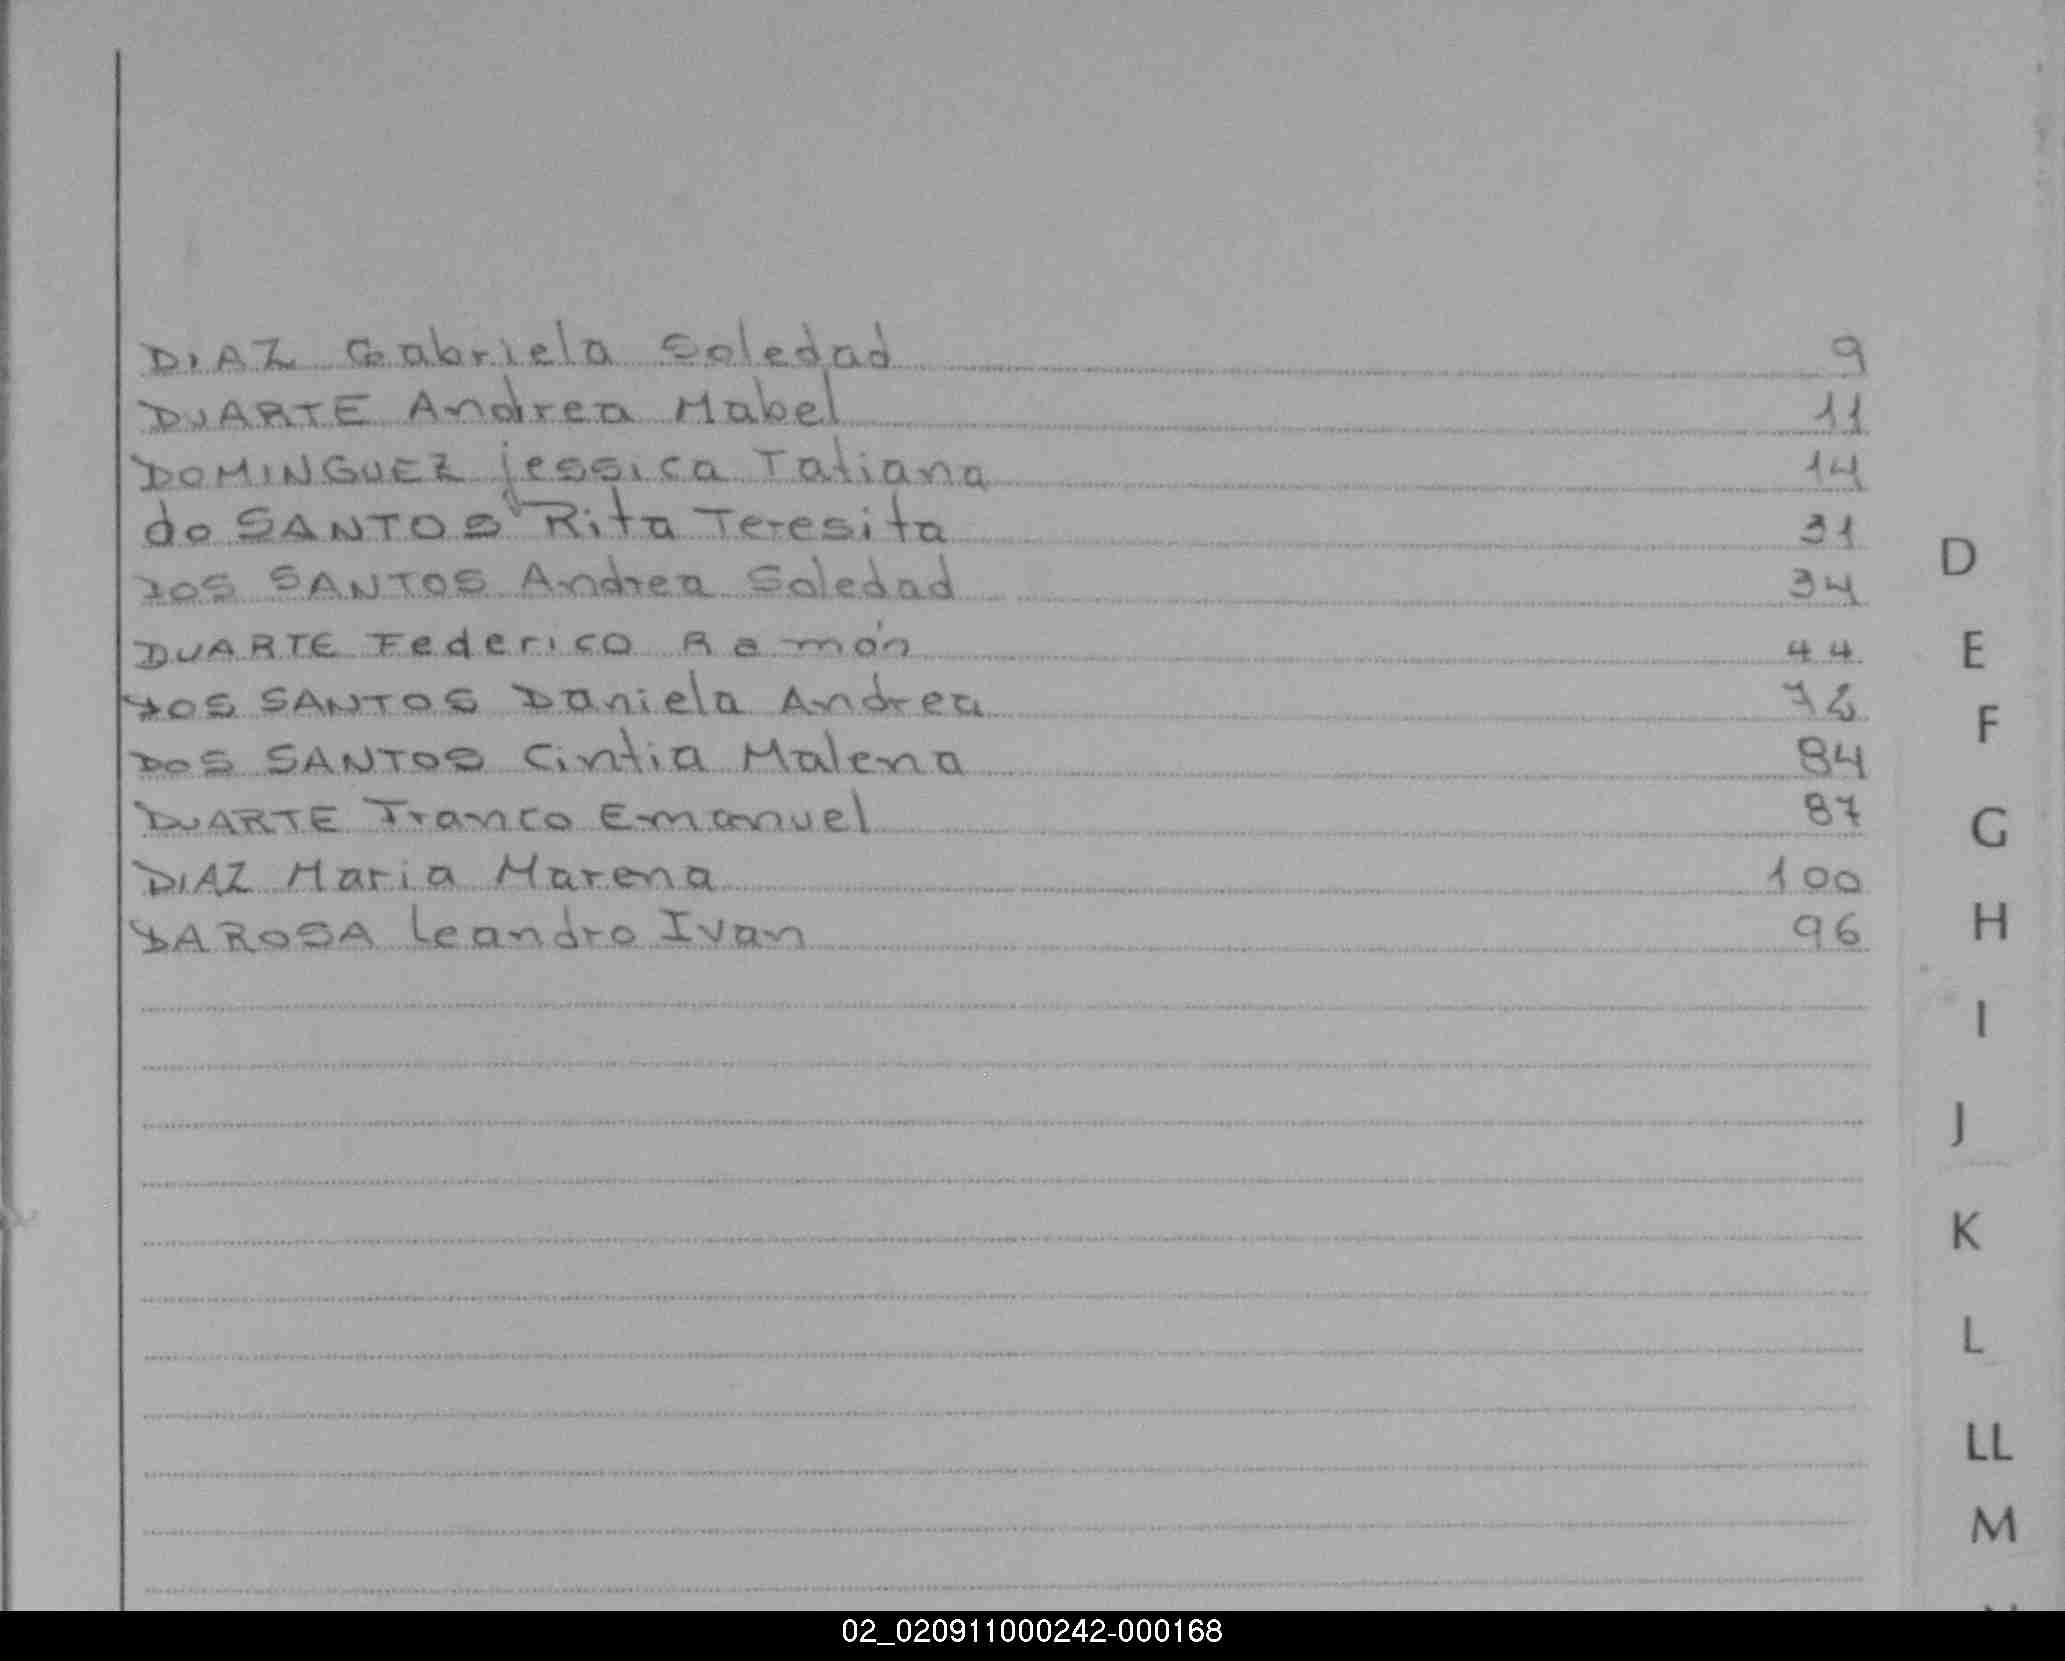 DIAZ Gabriela Soledad 9
DUARTE Andrea Mabel 11
DOMINGUEZ jessica Tatiana 14
do SANTOS Rita Teresita 31
DOS SANTOS Andrea Soledad 34
DUARTE Federico Ramón 44
DOS SANTOS Daniela Andrea
DOS SANTOS Cintia Malena 84
DUARTE Franco Emanuel 87
DIAZ Maria Marena 100
DA ROSA Leandro Ivan 96
D
E
F
G
H
I
J
K
L
LL
M
02_020911000242-000168